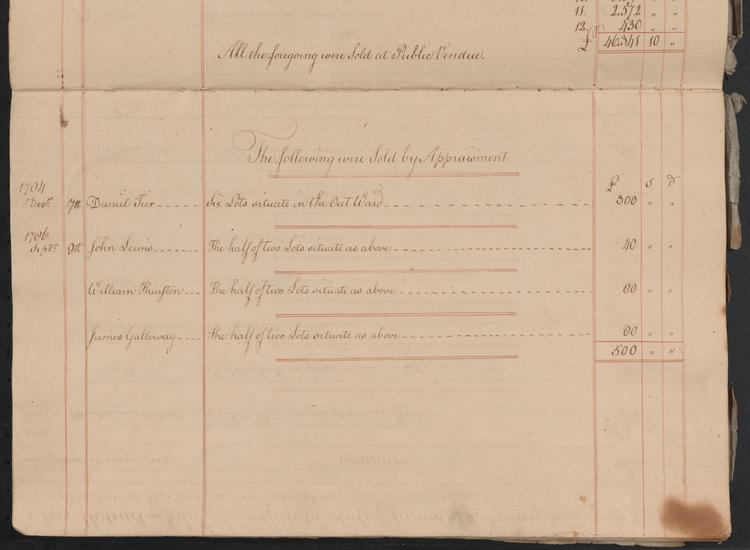 11. 2.572 „ „
12. 430 „ „
£ 46.341 10 „
All the foregoing were Sold at Public Vendue.
The following were Sold by Appraisment
£ s d
1784
Decr. 7th Daniel Tier Six Lots situate in the Out Ward 300 „ „
1786
Septr. 9th John Lewis The half of two Lots situate as above 40 „ „
William Thurston The half of two Lots situate as above 80 „ „
James Galloway The half of two Lots situate as above 80 „ „
500 „ „